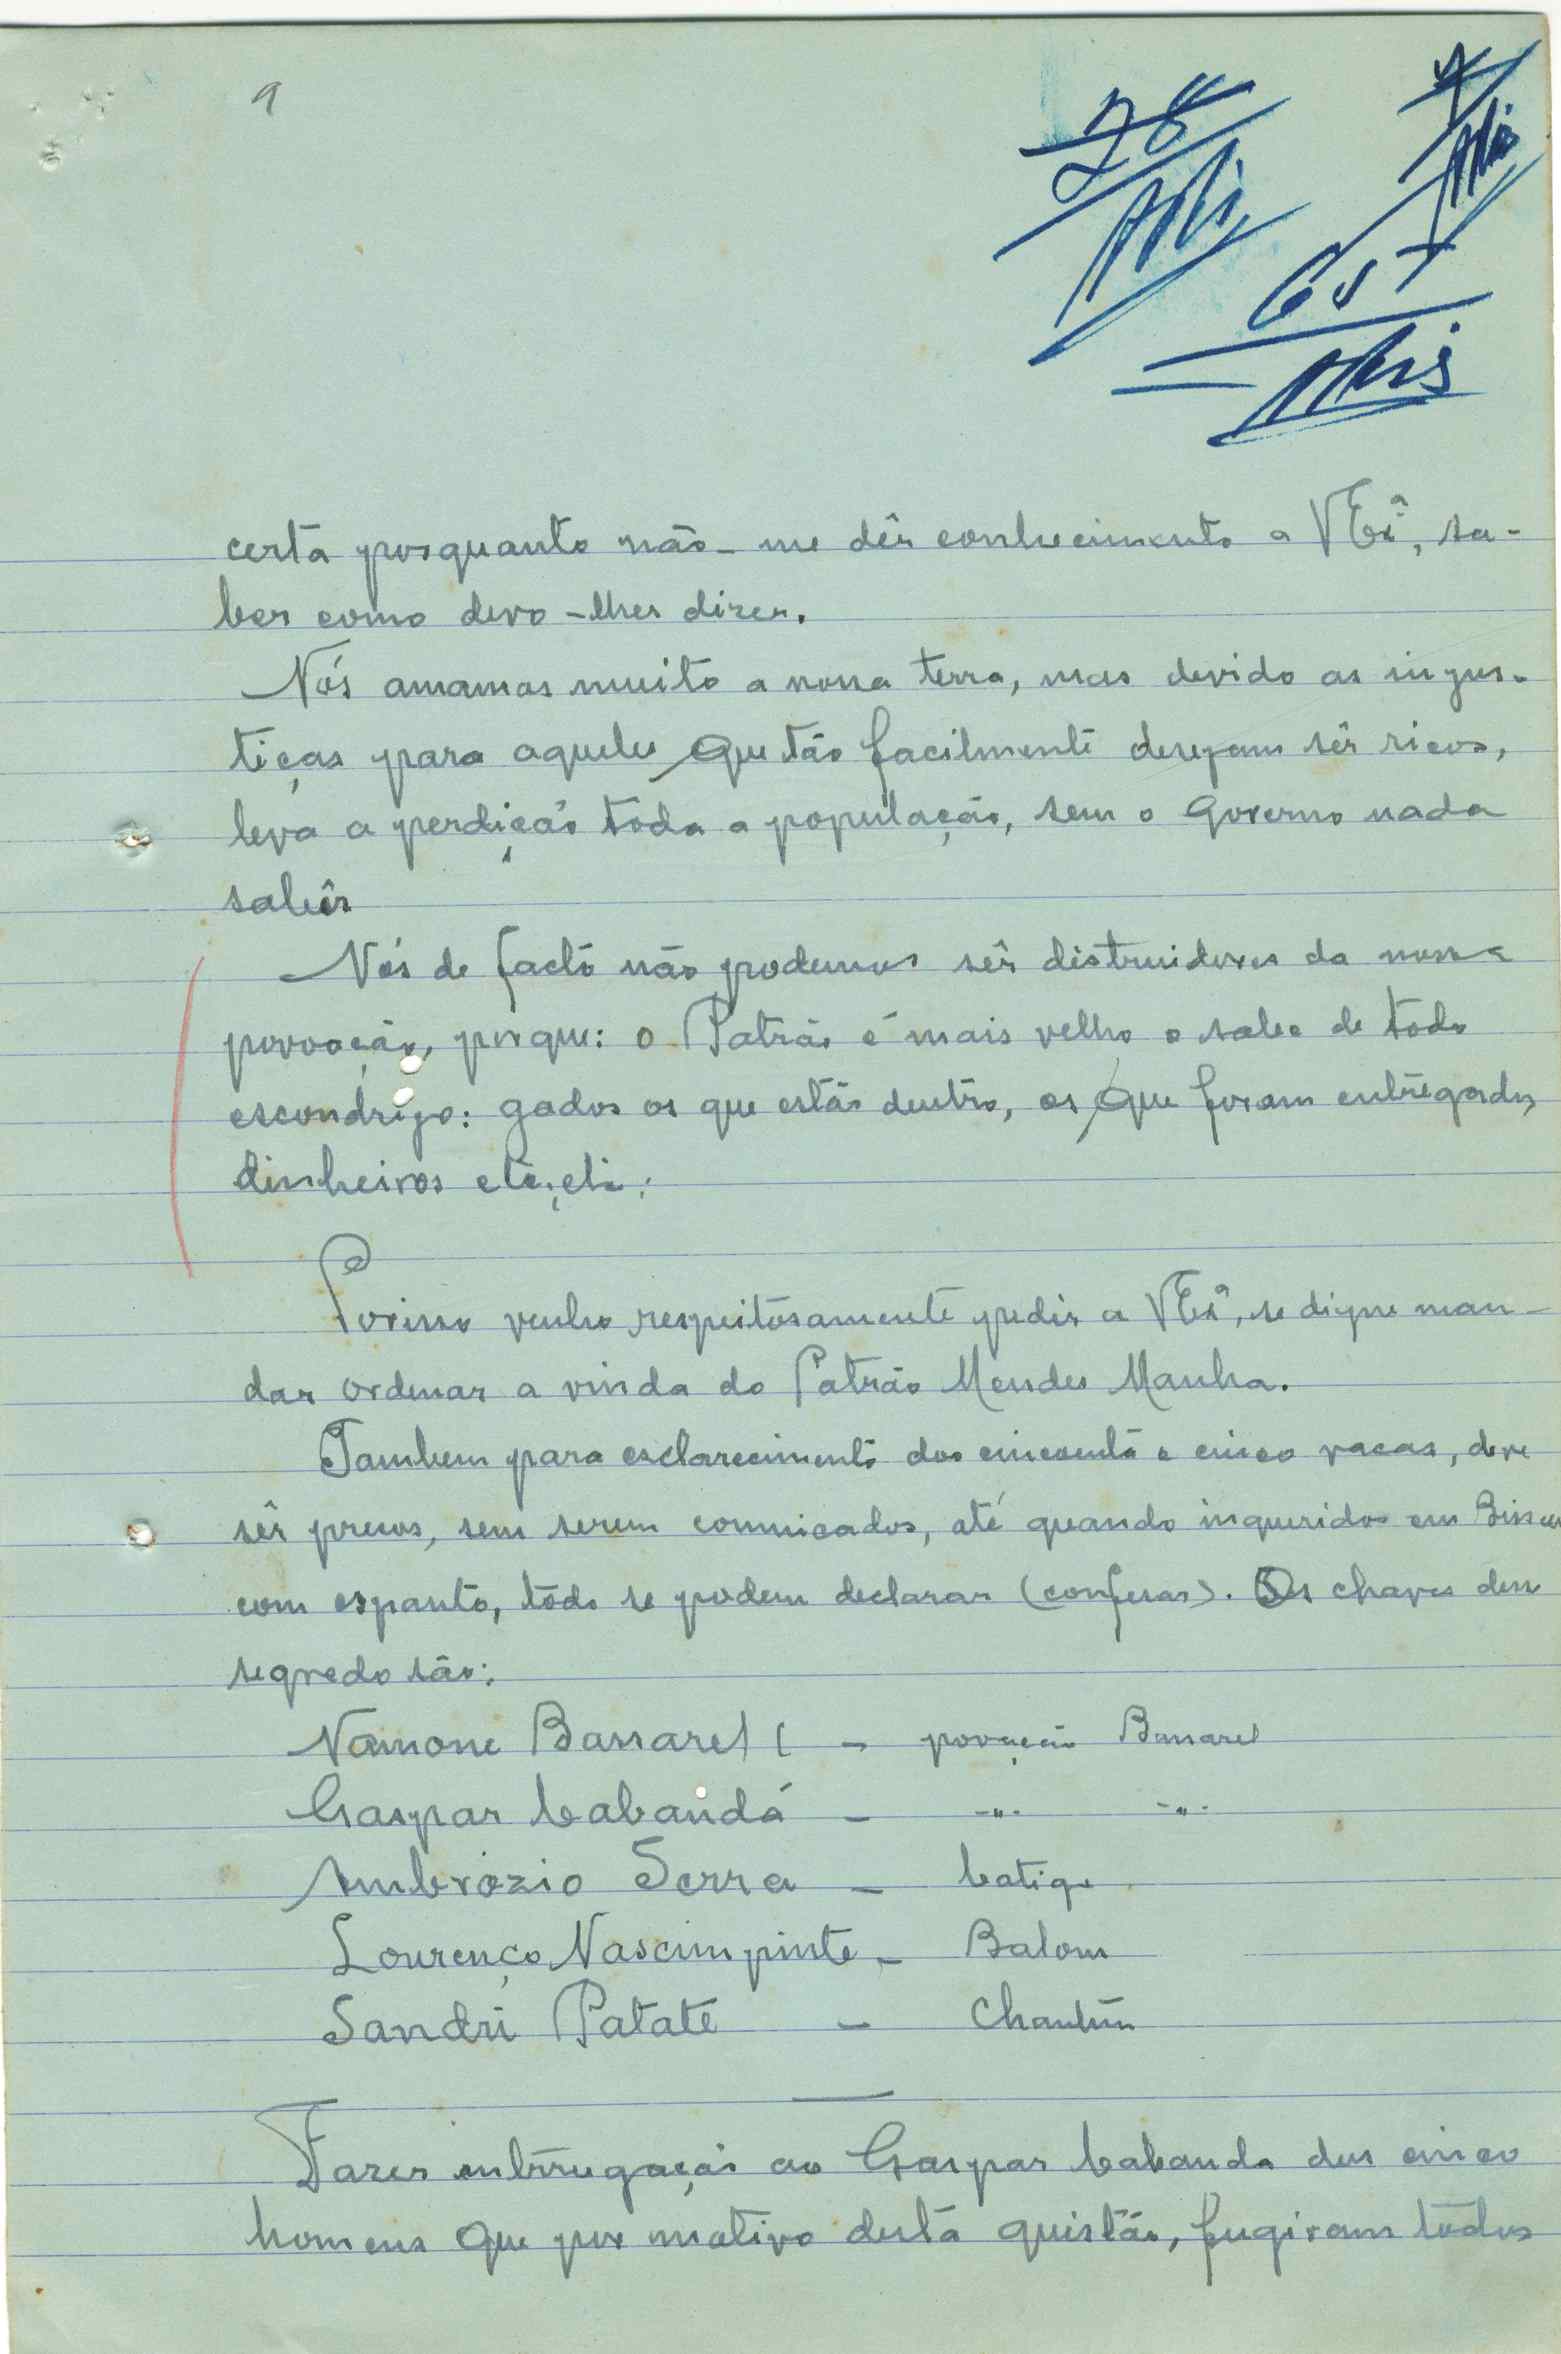 9
78
7
65
certa porquanto não-me dêr conhecimento a VExª, sa-
ber como devo-lhes dizer.
Nós amamos muito a nossa terra, mas devido as injus-
tiças para aqueles que tão facilmente desejam sêr ricos,
leva a perdição toda a população, sem o Governo nada
sabêr
Nós de facto não podemos sêr distruidores da nossa
povoação, porque: o Patrão é mais velho e sabe de todo
escondrijo: gados os que estão dentro, os que foram entregados,
dinheiros etc, etc;
Porisso venho respeitosamente pedir a VExª, se digne man-
dar ordenar a vinda do Patrão Mendes Manha.
Tambem para esclarecimento das cincoenta e cinco vacas, deve
sêr presos, sem serem comunicados, até quando inqueridos em Bissau
com espanto, todo se podem declarar (confessar). Os chaves desse
segredo são:
Namone Bassarel - povoação Bassarel
Gaspar Cabandá - -"- -"-
Ambrózio Serra - Catiqe
Lourenço Nascimpinte - Balom
Sandri Patate - Chantim
Fazer interrugação ao Gaspar Cabanda dus cinco
homens que por motivo desta quistão, fugiram todos